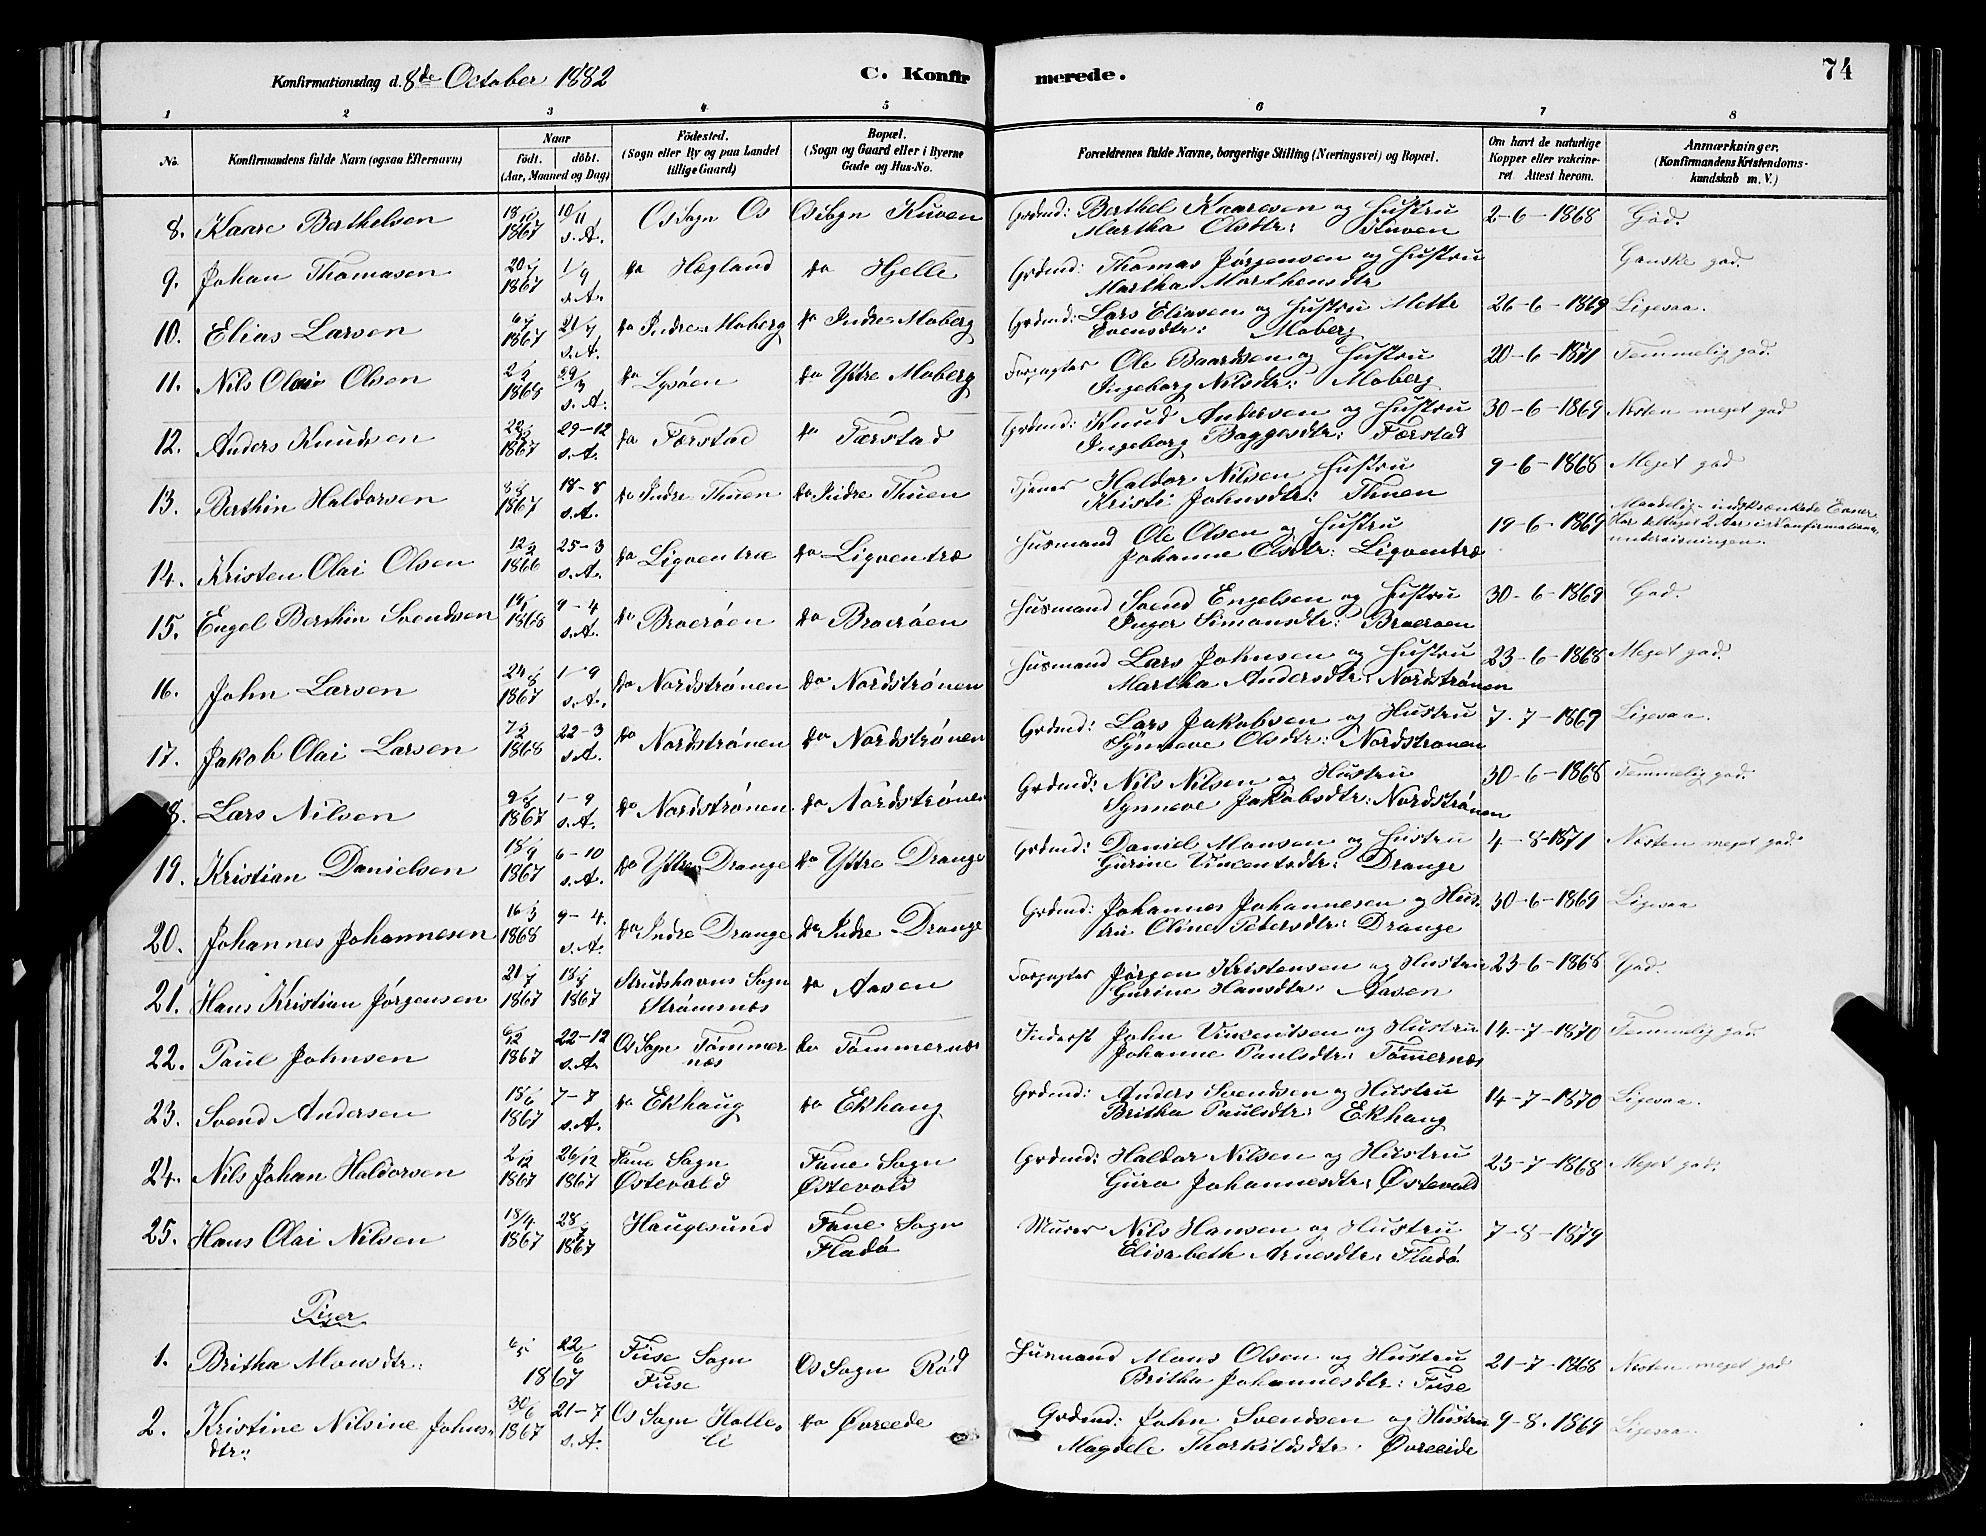 Konfirmationsdag d. 8de October 1882
C. Konfirmerede.
74
1 2 3 4 5 6 7 8
No. Konfirmandens fulde Navn (ogsaa Efternavn) Naar födt. döbt. (Aar, Maaned og Dag) Födested. (Sogn eller By og paa Landet tillige Gaard) Bopæl. (Sogn og Gaard eller i Byerne Gade og Hus-No. Forældrenes fulde Navne, borgerlige Stilling (Næringsvei) og Bopæl. Om havt de naturlige Kopper eller vakcineret Attest herom. Anmærkninger. (Konfirmandens Kristendomskundskab m. V.)
8. Kaare Berthelsen 1867 10/11 s. A. Os Sogn Os Os Sogn Kuven Grdmd: Berthel Kaaresen og Hustru 2-6-1868 God.
Martha Olsdtr: Kuven
9. Johan Thomasen 1867 1/9 s. A. do Hegland do Hjelle Grdmd: Thomas Jørgensen og Hustru Ganske god.
Martha Marthensdtr
10. Elias Larsen 6/7 1867 21/7 s. A. do Indre Moberg do Indre Moberg Grdmd: Lars Eliasen og Hustru Mette 26-6-1869 Ligesaa.
Evensdtr: Moberg
11. Nils Olai Olsen 1868 29/3 s. A. do Lysøen do Ytre Moberg Forpagter Ole Baardsen og Hustru 20-6-1871 Temmelig god.
Ingeborg Nilsdtr: Moberg
12. Anders Knudsen 1867 29-12 s. A. do Færstad do Færstad Grdmd: Knud Andersen og Hustru 30-6-1869 Nesten meget god
Ingeborg Baggesdtr: Færstad
13. Berthin Haldorsen 1867 18-8 s. A. do Indre Thuen do Indre Thuen Tjener Haldor Nilsen Hustru 9-6-1868 Meget god
Kristi Johnsdtr: Thuen
14. Kristen Olai Olsen 1866 25-3 s. A. do Ligventræ do Ligventræ Husmand Ole Olsen og Hustru 19-6-1869 Maadelig - indskrænkede Evner
Johanne Olsdtr: Ligventræ Har deltaget 2 Aar i Konfirmations-
undervisningen.
15. Engel Berthin Svendsen 1868 9-4 s. A. do Bruerøen do Bruerøen Husmand Svend Engelsen og Hustru 30-6-1869 God.
Inger Simonsdtr: Bruerøen
16. John Larsen 24/8 1867 1-9 s. A. do Nordstrønen do Nordstrønen Husmand Lars Johnsen og Hustru 23-6-1868 Meget god.
Martha Andersdtr: Nordstrønen
17. Jakob Olai Larsen 1868 22-3 s. A. do Nordstrønen do Nordstrønen Grdmd: Lars Jakobsen og Hustru 7-7-1869 Ligesaa.
Synneve Olsdtr: Nordstrønen
8. Lars Nilsen 9/8 1867 1-9 s. A. do Nordstrønen do Nordstrønen Grdmd: Nils Nilsen og Hustru 30-6-1868 Temmelig god.
Synneve Jakobsdtr: Nordstrønen
19. Kristian Danielsen 18/9 1867 6-10 s. A. do Yttre Drange do Yttre Drange Grdmd: Daniel Monsen og Hustru 4-8-1871 Nesten meget god
Gurine Vincentsdtr: Drange
20. Johannes Johannesen 16/3 1868 9-4. s. A. do Indre Drange do Indre Drange Grdmd: Johannes Johannesen og Hus- 30-6-1869 Ligesaa
tru Oline Petersdtr: Drange
21. Hans Kristian Jørgensen 1867 1867 Strudshavns Sogn Strømsnes do Aasen Forpagter Jørgen Kristensen og Hustru 23-6-1868 God.
Gurine Hansdtr: Aasen
22. Paul Johnsen 6/12 1867 22-12 s. A. Os Sogn Tømmernæs do Tømmernæs Inderst John Vincentsen og Hustru 14-7-1870 Temmelig god
Johanne Paulsdtr: Tømmernæs
23. Svend Andersen 15/6 1867 7-7 s. A. do Ekhaug do Ekhaug Grdmd: Anders Svendsen og Hustru 14-7-1870 Ligesaa.
Britha Paulsdtr: Ekhaug
24. Nils Johan Haldorsen 2/12 1867 26/12 1867 Fane Sogn Østevold Fane Sogn Østevold Grdmd: Haldor Nilsen og Hustru 23-7-1868 Meget god.
Guro Johannesdtr: Østevold
25. Hans Olai Nilsen 18/4 1867 28/7 1867 Haugesund Fane Sogn Fladø Murer Nils Hansen og Hustru 7-8-1879
Elisabeth Arnesdtr: Fladø
Piger
1. Britha Monsdtr: 6/5 22/6 1867 Fuse Sogn Fuse Os Sogn Rød Husmand Mons Olsen og Hustru 21-7-1868 Nesten meget god
Britha Johannesdtr: Fuse
2. Kristine Nilsine Johns- 30/6 1867 21-7 s. A. Os Sogn Holleli do Øvreede Grdmd: John Svendsen og Hustru 9-8-1869 Ligesaa.
dtr: Magdele Thorkildsdtr. Øvreeide